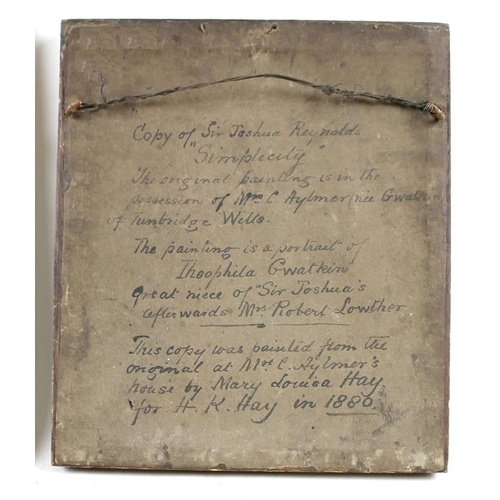 Copy of Sir Joshua Reynolds
"Simplicity"
The original painting is in the
possession of Mrs C Aylmer née Gwatkin
of Tunbridge Wells.
The painting is a portrait of
Theophila Gwatkin
great niece of "Sir Joshua's
afterwards Mrs Robert Lowther
This copy was painted from the
original at Mrs C. Aylmer's
house by Mary Louisa Hay
for H. K. Hay in 1880.